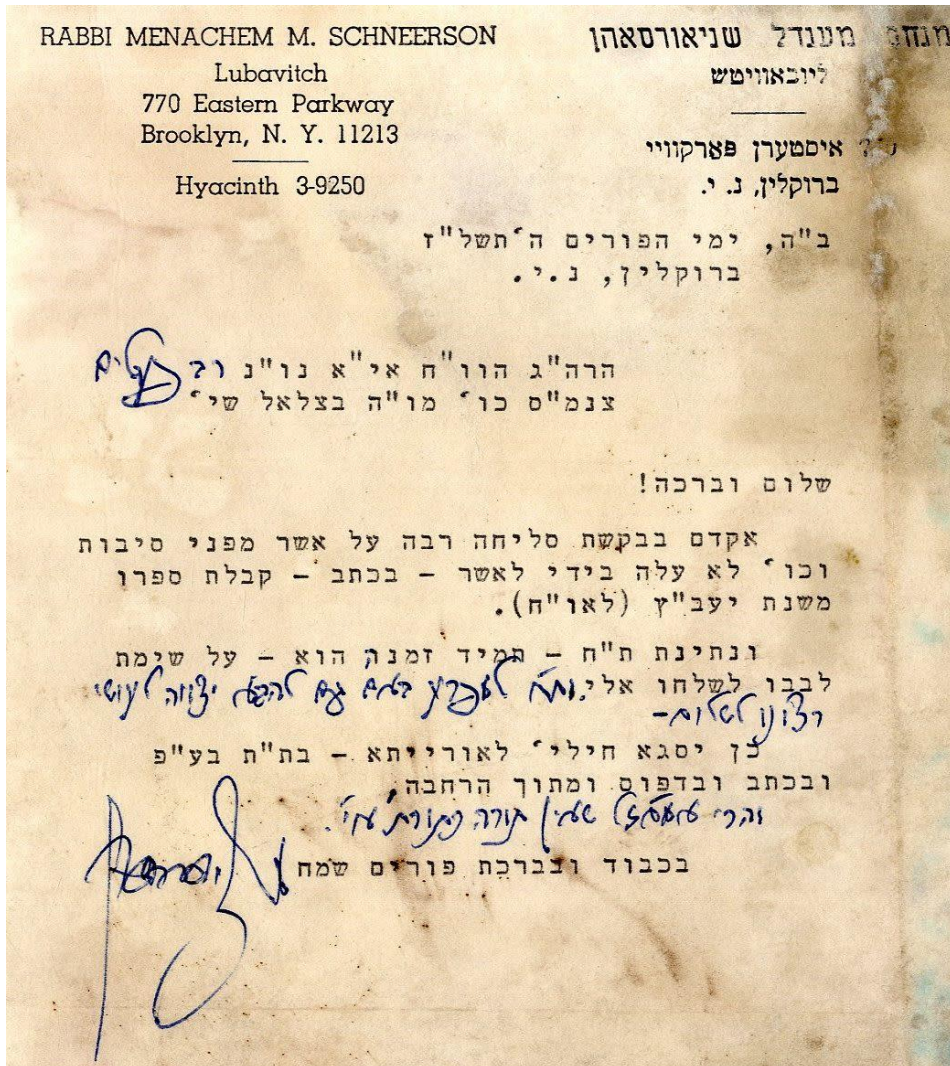 RABBI MENACHEM M. SCHNEERSON
Lubavitch
770 Eastern Parkway
Brooklyn, N. Y. 11213
Hyacinth 3-9250
מנחם מענדל שניאורסאהן
ליובאוויטש
איסטערן פארקוויי
ברוקלין, נ. י.
ב"ה, ימי הפורים ה'תשל"ז
ברוקלין, נ.י.
הרה"ג הוו"ח אי"א נו"נ רב פעלים
צנמ"ס כו' מו"ה בצלאל שי'
שלום וברכה!
אקדם בבקשת סליחה רבה על אשר מפני סיבות
וכו' לא עלה בידי לאשר - בכתב - קבלת ספרו
משנת יעב"ץ (לאו"ח).
ונתינת ת"ח - תמיד זמנה הוא - על שימת
לבבו לשלחו אלי. גם להבא
רצונו לשלום-
כן יסגא חילי' לאורייתא - בת"ת בע"פ
ובכתב ובדפוס ומתוך הרחבה,
והרי תורה
בכבוד ובברכת פורים שמח